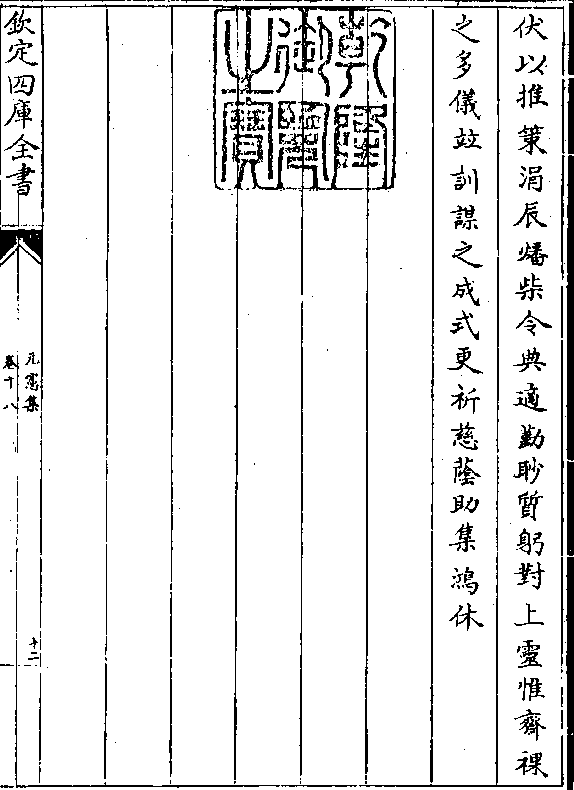 伏以推策涓辰燔柴令典適勤眇質躬對上靈惟齋祼
之多儀竝訓謀之成式更祈慈蔭助集鴻休
乾隆御覽之寶
欽定四庫全書
元憲集
卷十八
十二